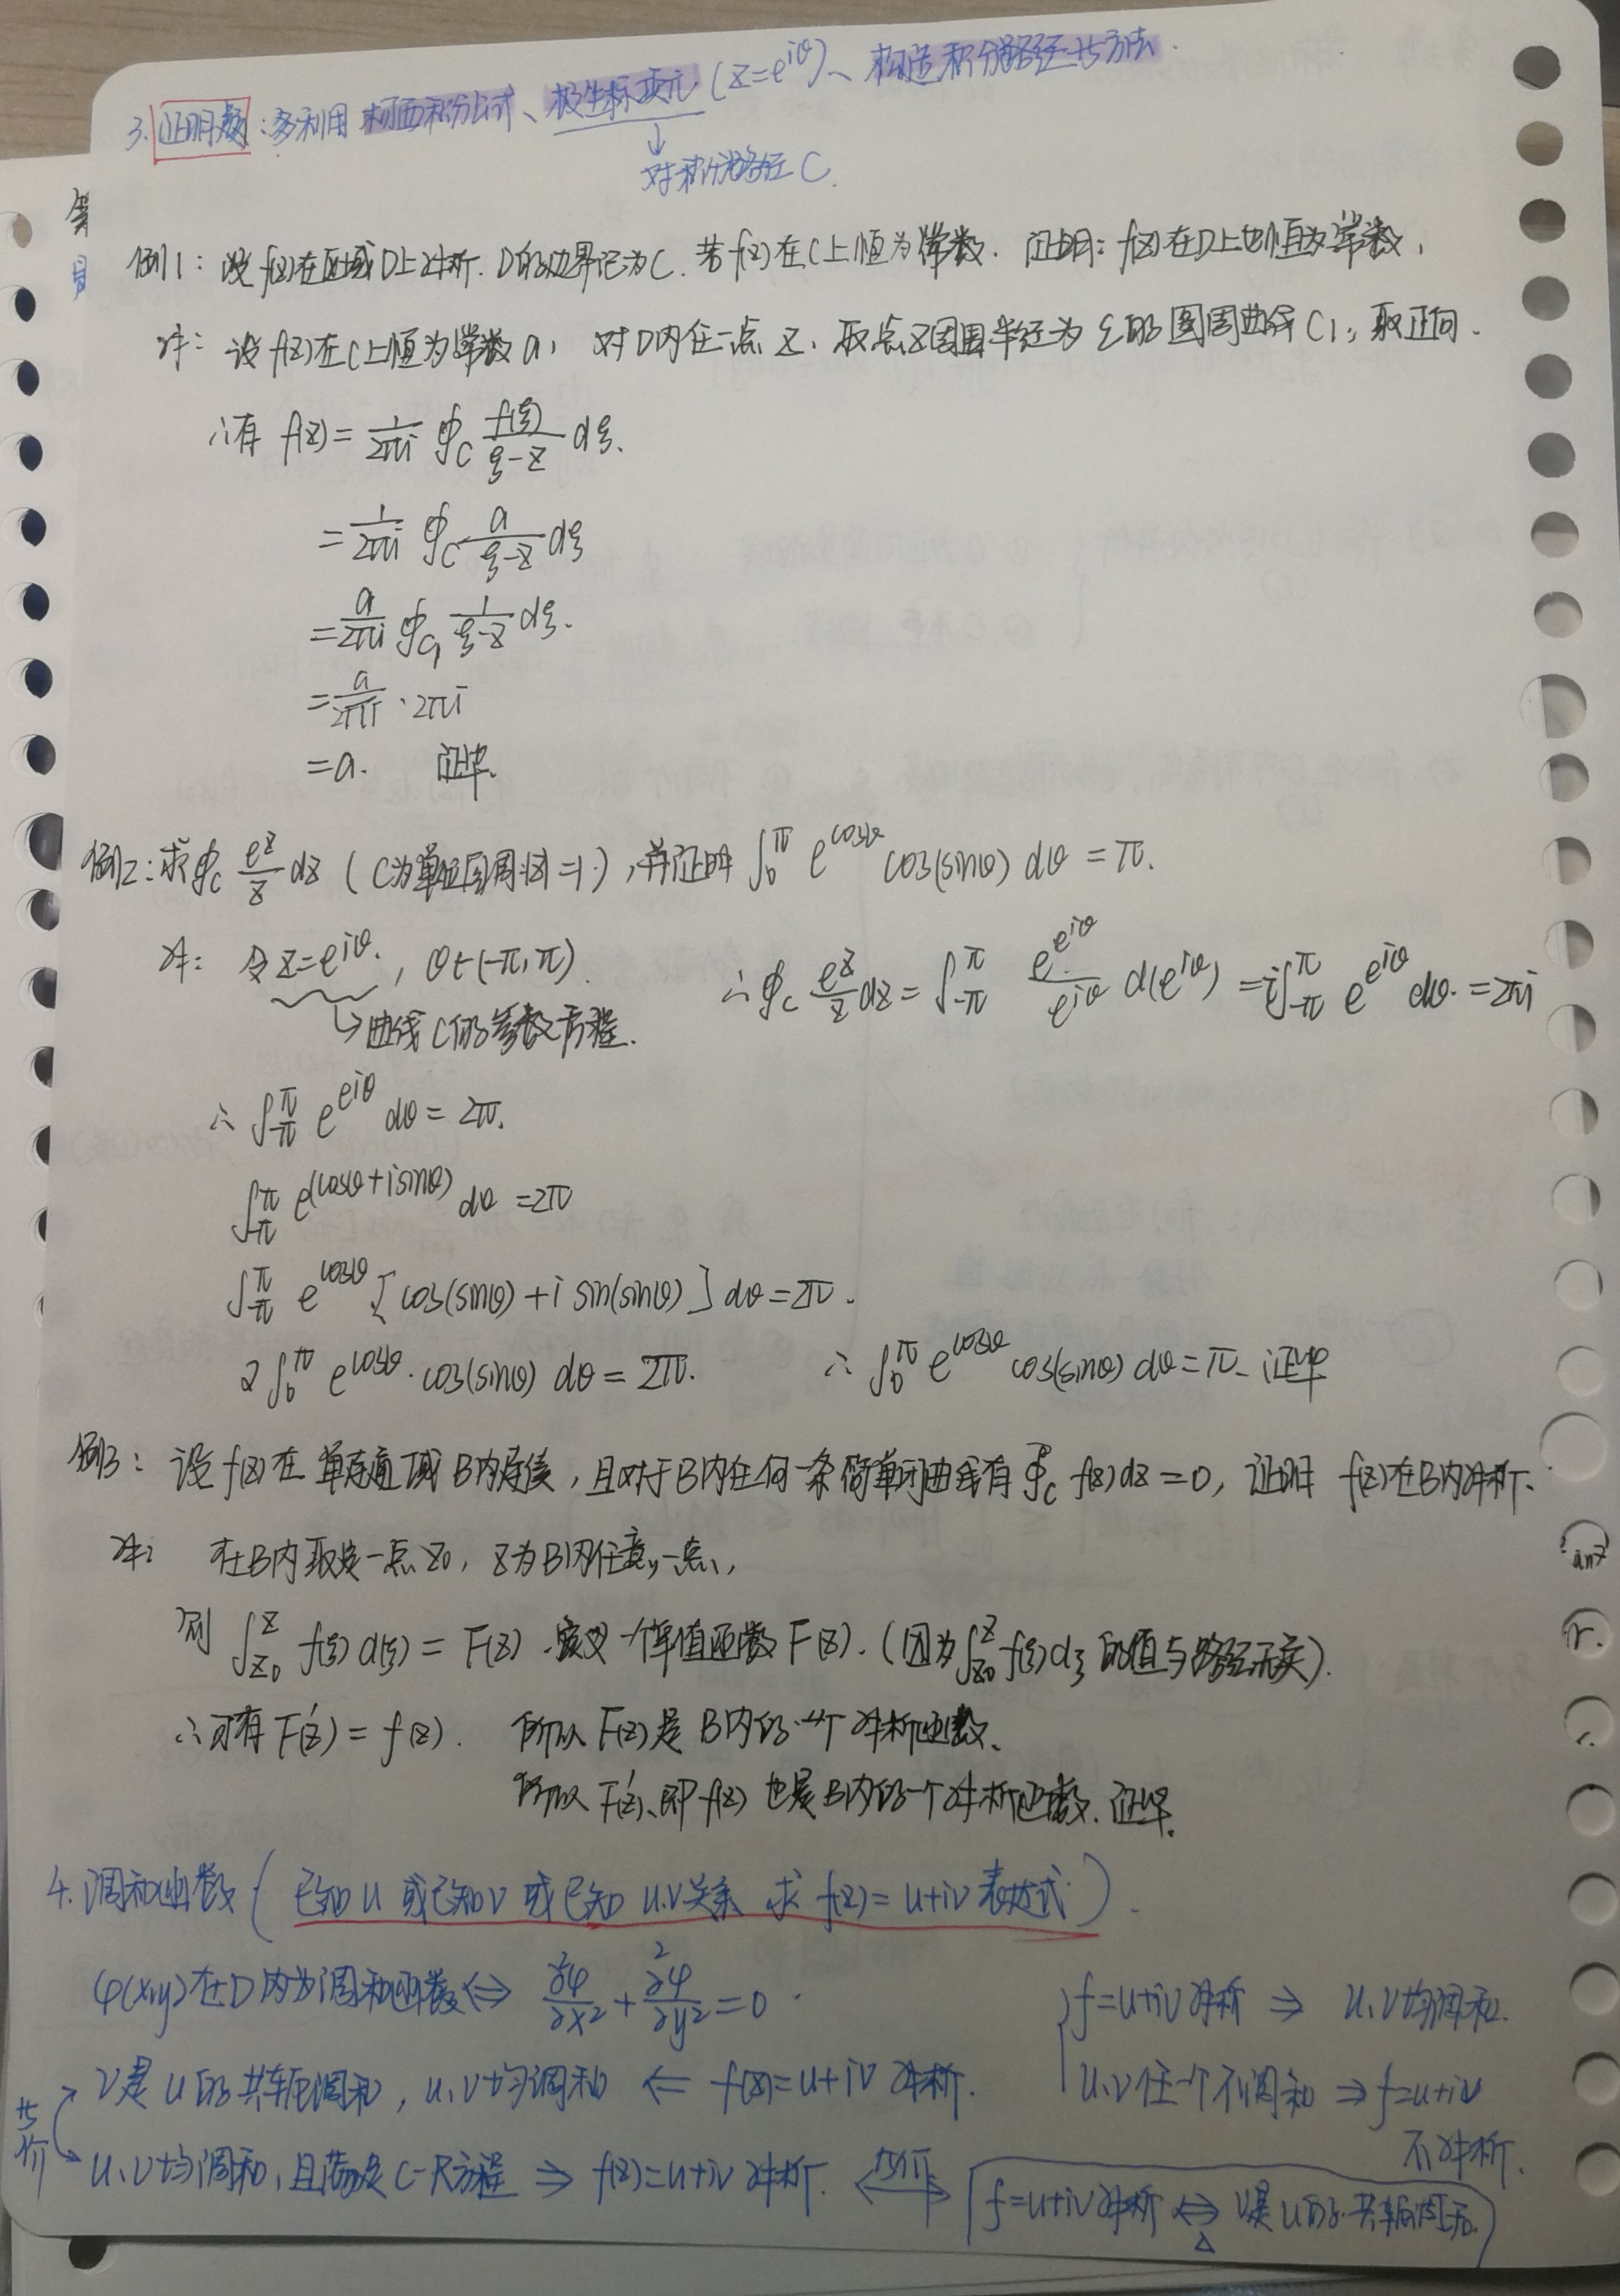 3. 证明题：多利用柯西积分公式、极坐标换元（z=e^{iθ}）、构造积分路径等方法.
↓
对积分路径 C.
例1：设 f(z)在区域D上解析. D的边界记为C. 若 f(z)在C上恒为常数. 证明：f(z)在D上也恒为常数，
解：设 f(z)在C上恒为常数a，对D内任一点 z，取点z周围半径为ε的圆周曲线C1，取正向.
∴有 f(z)= 1/(2πi) ∮_C f(ξ)/(ξ-z) dξ.
= 1/(2πi) ∮_C a/(ξ-z) dξ
= a/(2πi) ∮_{C1} 1/(ξ-z) dξ.
= a/(2πi) · 2πi
= a. 证毕.
例2：求∮_C e^z/z dz（C为单位圆周|z|=1.），并证明 ∫_0^π e^{cosθ} cos(sinθ) dθ = π.
解：令 z=e^{iθ}，θ∈(-π,π). ∴∮_C e^z/z dz = ∫_{-π}^{π} e^{e^{iθ}}/e^{iθ} d(e^{iθ}) = i∫_{-π}^{π} e^{e^{iθ}} dθ = 2πi
↳曲线C的参数方程.
∴ ∫_{-π}^{π} e^{e^{iθ}} dθ = 2π.
∫_{-π}^{π} e^{(cosθ+isinθ)} dθ = 2π
∫_{-π}^{π} e^{cosθ} [cos(sinθ)+i sin(sinθ)] dθ = 2π.
2∫_0^π e^{cosθ}·cos(sinθ) dθ = 2π. ∴ ∫_0^π e^{cosθ} cos(sinθ) dθ = π. 证毕
例3：设 f(z)在单连通域B内连续，且对于B内任何一条简单闭曲线有∮_C f(z)dz=0，证明 f(z)在B内解析.
解：在B内取定一点z0，z为B内任意一点，
则 ∫_{z0}^{z} f(ξ)d(ξ) = F(z) 定义一个单值函数F(z).（因为∫_{z0}^{z} f(ξ)dξ的值与路径无关）.
∴可有 F'(z) = f(z). 所以 F(z)是B内的一个解析函数.
所以 F'(z)、即 f(z) 也是B内的一个解析函数. 证毕.
4. 调和函数（已知u 或已知v 或已知 u.v关系 求 f(z)=u+iv 表达式）.
φ(x,y)在D内为调和函数⇔ ∂²φ/∂x² + ∂²φ/∂y² = 0.
f=u+iv解析 ⇒ u、v均调和.
v是u的共轭调和，u、v均调和 ⇐ f(z)=u+iv 解析.
u、v任一个不调和 ⇒ f=u+iv
不解析.
等价
u、v均调和，且满足C-R方程 ⇒ f(z)=u+iv 解析.
f=u+iv解析 ⇔ v是u的共轭调和.